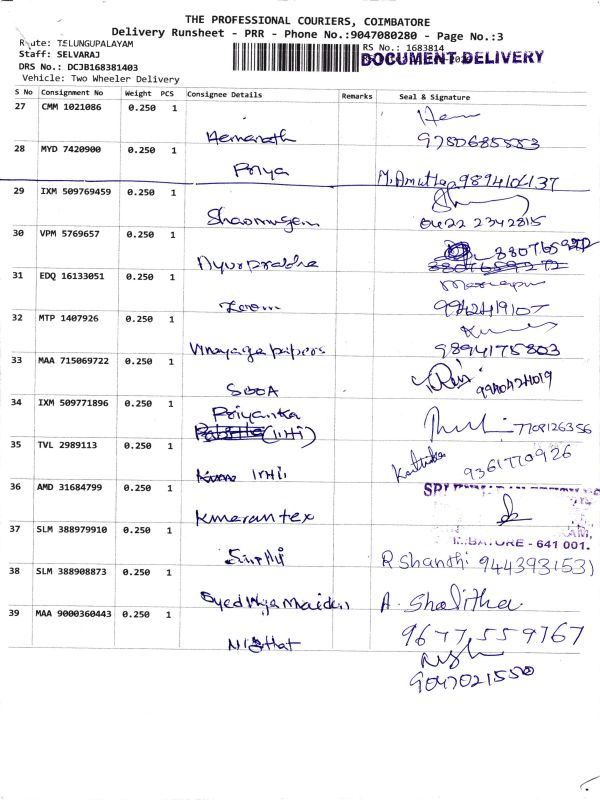 THE PROFESSIONAL COURIERS, COIMBATORE
Delivery Runsheet - PRR - Phone No.:9047080280 - Page No.:3
Route: TELUNGUPALAYAM
RS No.: 1683814
Staff: SELVARAJ
DOCUMENT DELIVERY
DRS No.: DCJB168381403
Vehicle: Two Wheeler Delivery
S No Consignment No Weight PCS Consignee Details Remarks Seal & Signature
27 CMM 1021086 0.250 1
Hemanath
28 MYD 7420900 0.250 1
Priya M. Amutha 9894104137
29 IXM 509769459 0.250 1
Shanmugam 0422 2342815
30 VPM 5769657 0.250 1
31 EDQ 16133051 0.250 1
9942419107
32 MTP 1407926 0.250 1
Vinayaga papers 9894175803
33 MAA 715069722 0.250 1
34 IXM 509771896 0.250 1
Priyanka
7708126356
35 TVL 2989113 0.250 1
9361770926
36 AMD 31684799 0.250 1
Kmerantex
37 SLM 388979910 0.250 1
- 641 001.
R Shanthi 944393153)
38 SLM 388908873 0.250 1
A. Shalitha
39 MAA 9000360443 0.250 1
9677559767
9047021550